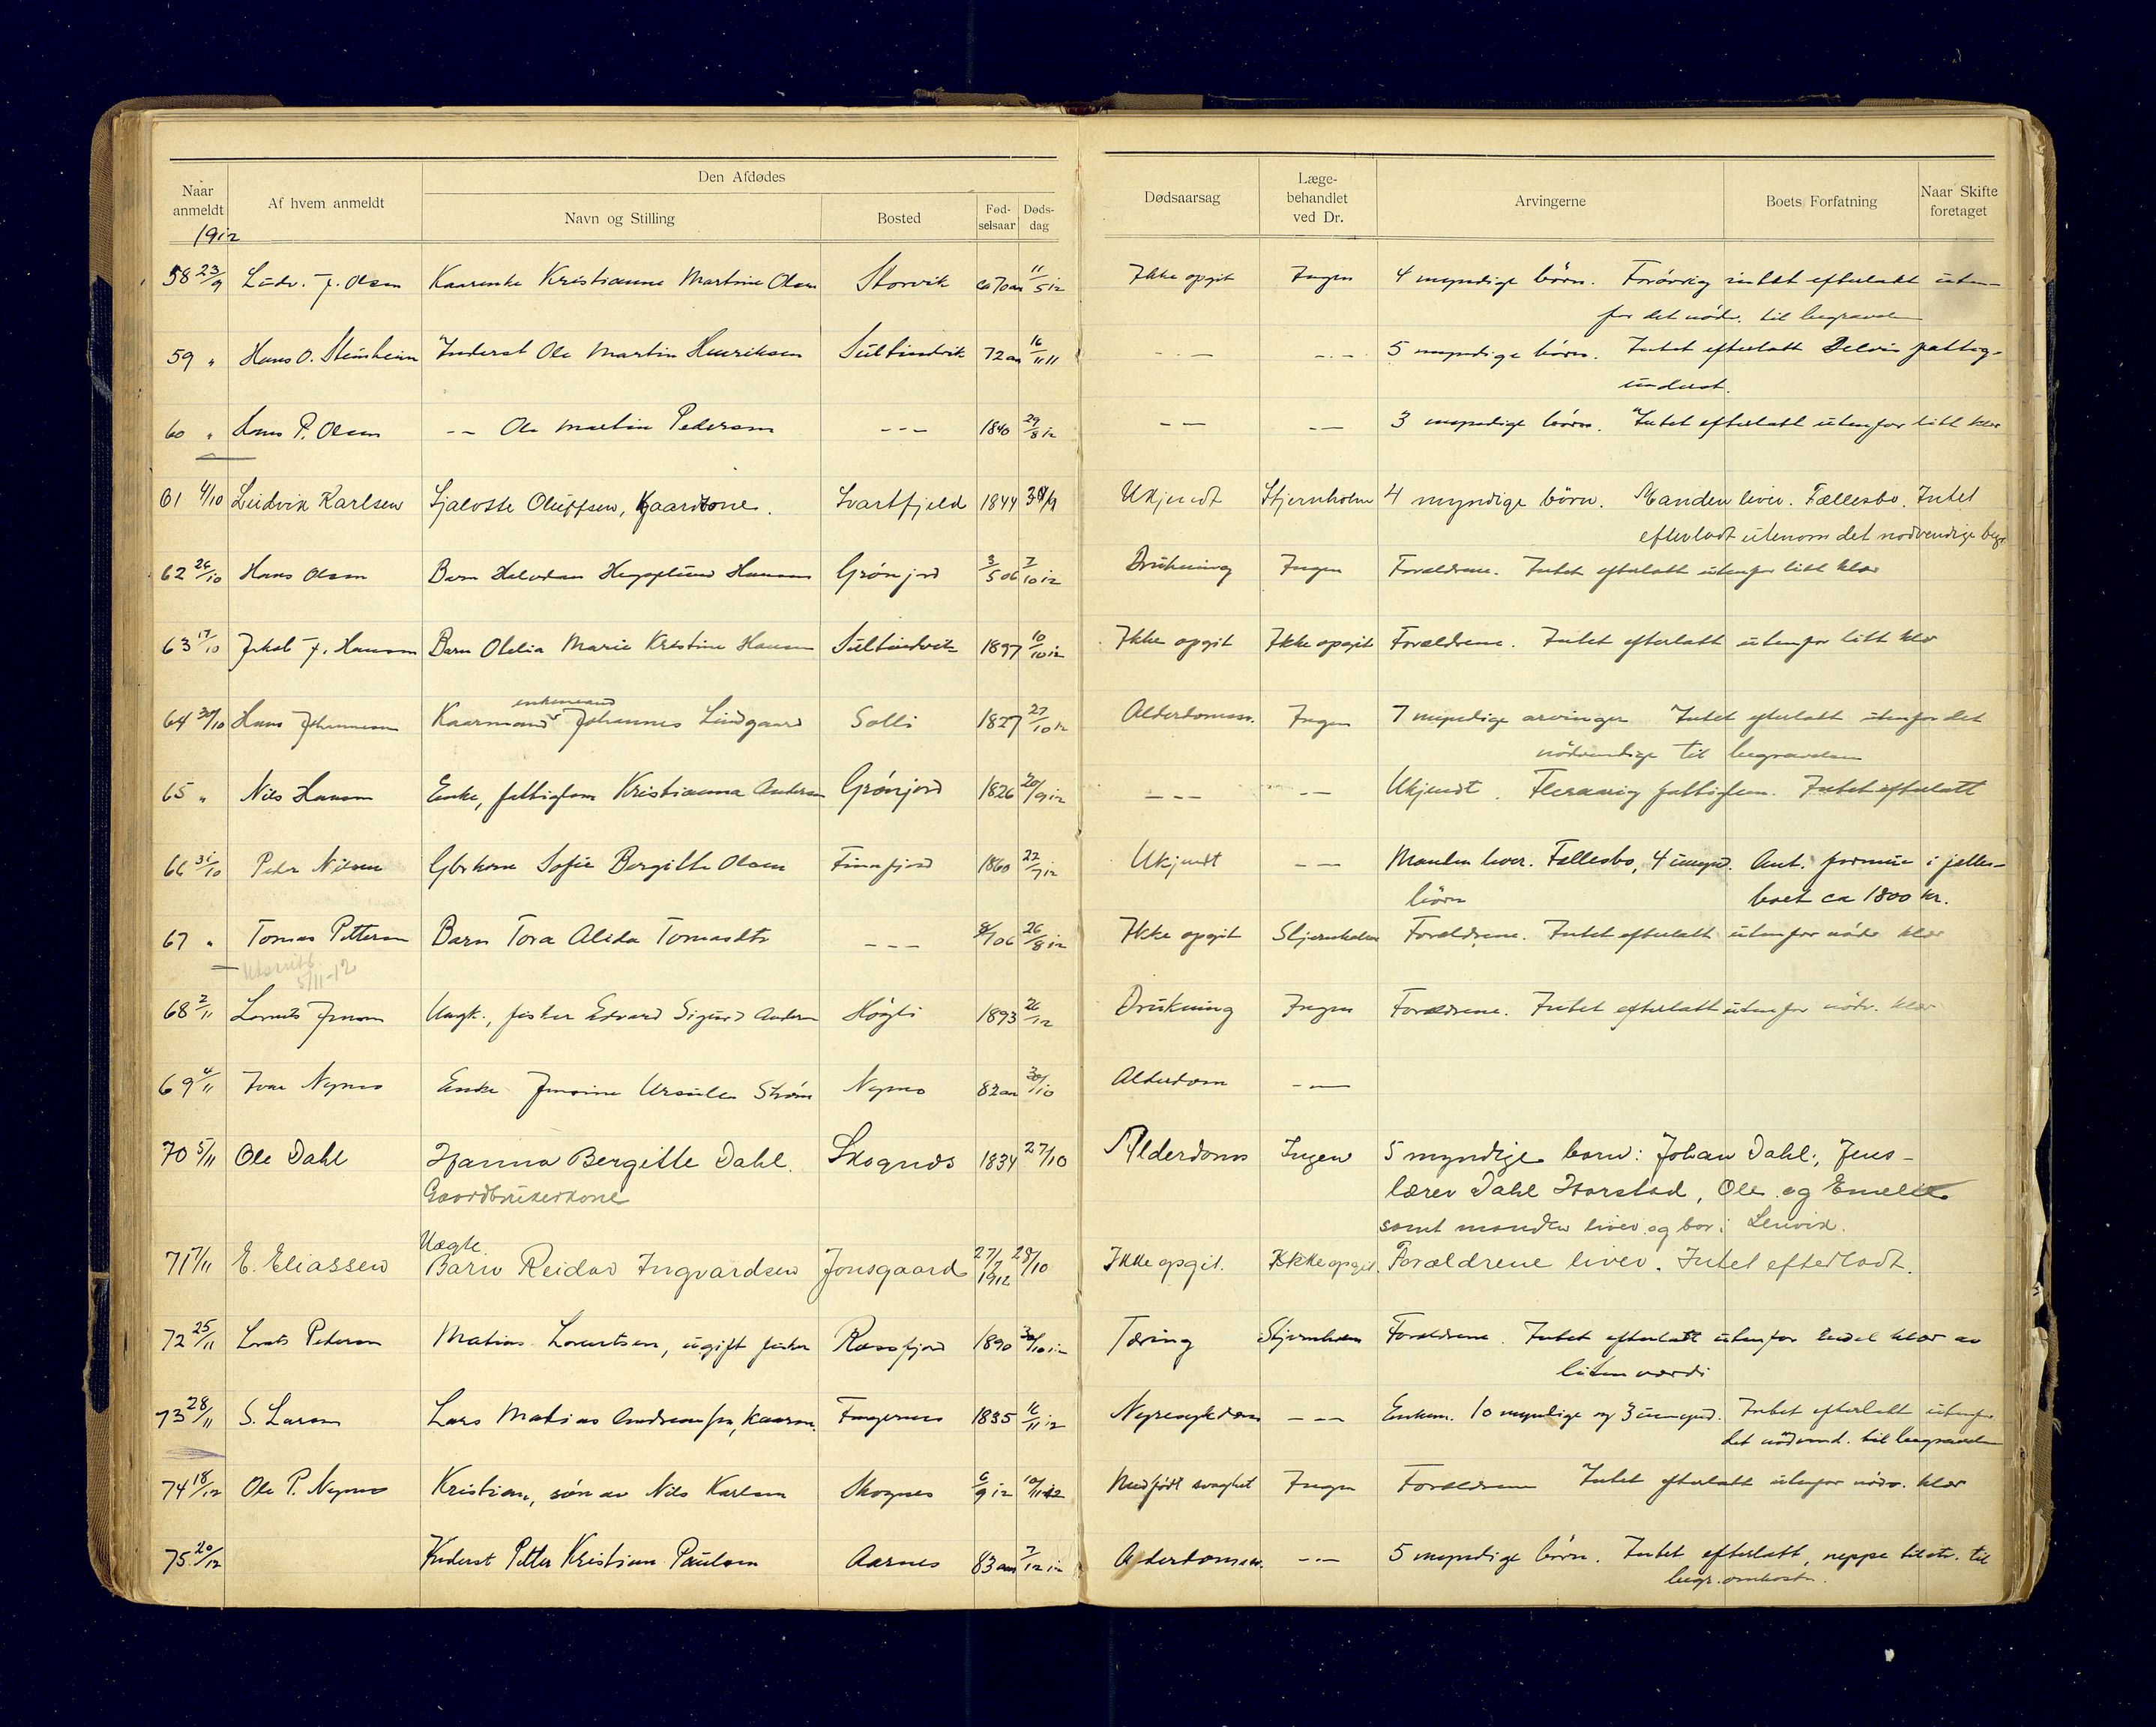 Naar anmeldt
Af hvem anmeldt
Den Afdødes
Navn og Stilling
Bosted
Fød-selsaar
Døds-dag
Dødsaarsag
Læge-behandlet ved Dr.
Arvingerne
Boets Forfatning
Naar Skifte foretaget
1912
58 23/9 Ludv. J. Olsen Kristianne Martine Olsen Storvik ca 70 aar 11/5 12 Ikke opgit Ingen 4 myndige børn. Forøvrig intet efterlatt uten-
for det nødv. til begravelse
59 " Hans O. Steinheim Inderst Ole Martin Henriksen Sultindvik 72 aar 16/11 11 - - - - 5 myndige børn. Intet efterlatt Delvis fattig-
underst.
60 " Hans P. Olsen - - Ole Martin Pedersen - - - 1840 29/8 12 - - - - 3 myndige børn. Intet efterlatt utenfor litt klær
61 4/10 Ludvik Karlsen Oluffsen, Kaardkone. Svartfjeld 1844 Ukjendt Stjernholm 4 myndige børn. Manden liver. Fællesbo. Intet
efterladt utenom det nødvendige begr
62 26/10 Hans Olsen Barn Halvdan Hansen Grønjord 3/5 06 7/10 12 Drukning Ingen Forældrene. Intet efterlatt utenfor litt klær
63 17/10 Jakob J. Hansen Barn Olelia Marie Kristine Hansen Sultindvik 1897 10/10 12 Ikke opgit Ikke opgit Forældrene. Intet efterlatt utenfor litt klær
enkemand
64 30/10 Hans Johannesen Kaarmand Johannes Lindgaard Solli 1827 27/10 12 Alderdomssv. Ingen 7 myndige arvinger Intet efterlatt utenfor det
nødvendige til begravelsen
65 " Nils Hansen Enke, fattiglem Kristianna Andersen Grønjord 1826 20/9 12 - - - - Ukjendt. Fleraarig fattiglem. Intet efterlatt
66 31/10 Peder Nilsen Gbr kone Sofie Bergitte Olsen Finfjord 1860 22/7 12 Ukjendt - - Manden lever. Fællesbo, 4 umynd. Ant. formue i fælles-
børn boet ca 1800 kr.
67 " Tomas Pettersen Barn Tora Alida Tomasdtr - - - 06 26/8 12 Ikke opgit Stjernholm Forældrene. Intet efterlatt utenfor nødv klær
5/11-12
68 2/11 Lorents Jensen Ungk., fisker Edvard Sigurd Andersen Høgli 1893 Drukning Ingen Forældrene. Intet efterlatt utenfor nødv. klær
69 4/11 Ivar Nymo Enke Ursula Strøm Nymo 82 aar 30/10 Alderdom - -
70 5/11 Ole Dahl Hanna Bergitte Dahl. Skognes 1834 27/10 Alderdoms Ingen 5 myndige børn: Johan Dahl., Jens -
Gaardbrukerkone lærer Dahl Harstad, Ole og Emelie
samt manden liver og bor i Lenvik.
Uægte
71 7/11 E. Eliassen Barn Reidar Ingvardsen Jonsgaard 27/7 1912 28/10 Ikke opgit. Ikke opgit. Forældrene liver. Intet efterladt.
72 25/11 Lorats Pedersen Matias Lorentsen, ugift fisker Rossfjord 1890 30/10 12 Tæring Stjernholm Forældrene. Intet efterlatt utenfor endel klær av
liten værdi
73 28/11 S. Larsen Lars Matias Andreassen, kaarm. Fagernes 1835 16/11 12 Nyresykdom - - - Enken. 10 myndige og 3 umynd. Intet efterlatt utenfor
det nødvend. til begravelsen
74 18/12 Ole P. Nymo Kristian, søn av Nils Karlsen Skognes 6/9 12 10/11 12 Medfødt svaghet Ingen Forældrene Intet efterlatt utenfor nødv. klær
75 20/12 Inderst Petter Kristian Paulsen Aarnes 83 aar 7/12 12 Alderdomssv. - - 5 myndige børn. Intet efterlatt, neppe tilstr. til
begr. omkostn.